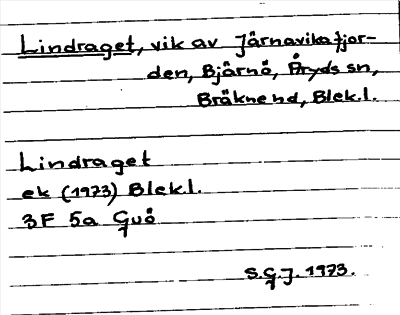 Lindraget, vik av Järnavikafjor-
den, Bjärnö, Åryds sn,
Bräkne hd, Blek.l.
Lindraget
ek (1973) Blek.l.
3F 5a Guö
S.G.J. 1973.